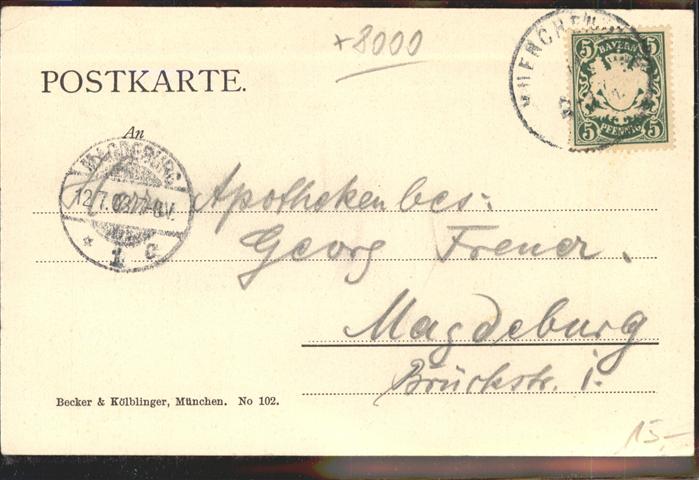 +8000
POSTKARTE.
An
MUENCHEN
5 5
BAYERN
PFENNIG
5 5
MAGDEBURG
12/7. 03. 7-8V.
* 1 c
Apothekenbes:
Georg
Magdeburg
Brückstr. 1.
Becker & Kölblinger, München. No 102.
15,-